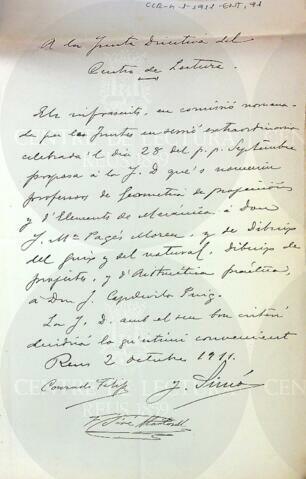 CCR-4-1-1911-ENT, 91
A la Junta Directiva del
Centro de Lectura.
Els infrascrits, en comissió nomena-
da per les Juntes en sessió extraordinaria
celebrada l dia 28 del p. p. Septembre
proposa á la J. D. que's nomenin
professors de Geometria de projeccións
y d'Elements de Mecánica á Don
J. Mª Pagés Morea, y de Dibuix
del guix y del natural, dibuix de
projectes, y d'Aritmetica práctica,
á Don J. Capdevila Puig.
La J. D. amb el seu bon criteri
decidirá lo qu'estimi convenient
Reus 2 octubre 1911.
Conrado J. Simó
CENTRE DE LECTURA
REUS 1859